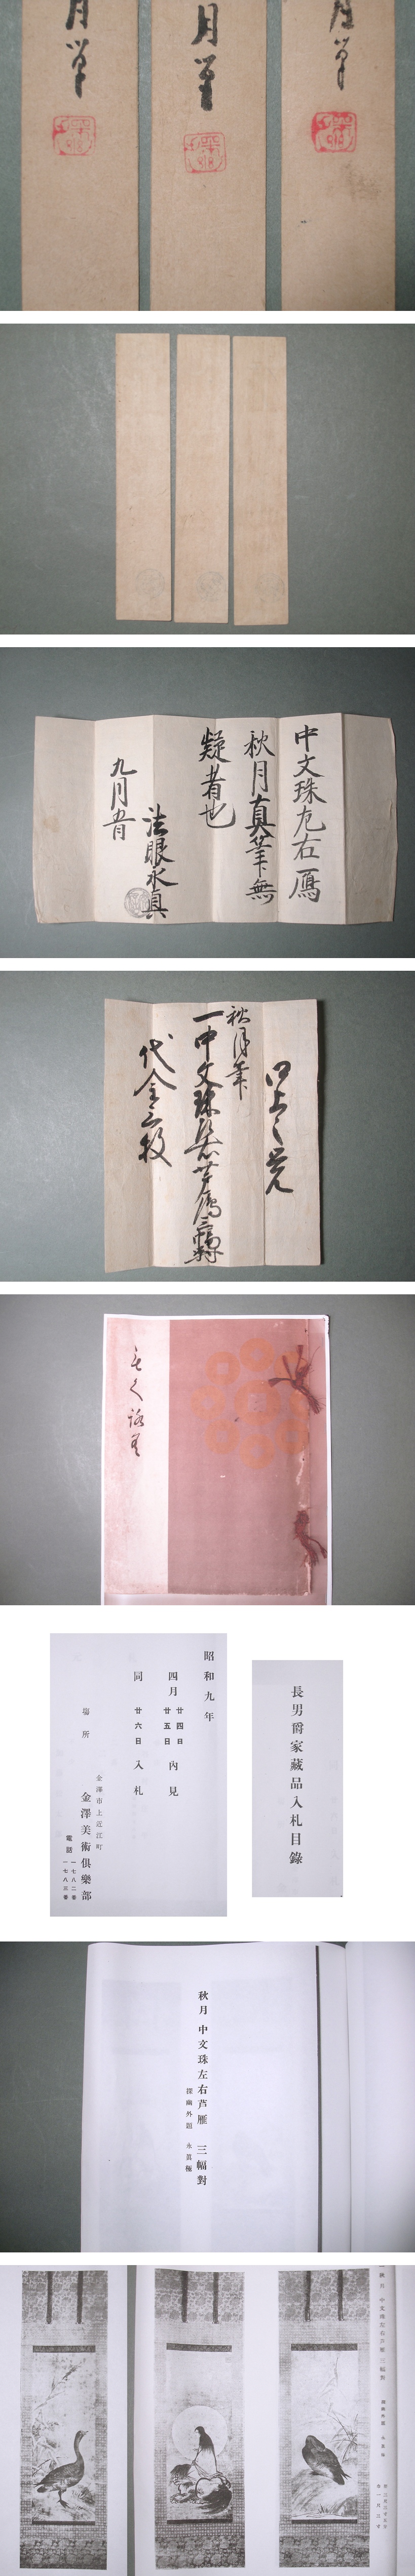 月筆
月筆
月筆
中文珠左右鴈
秋月真筆無
疑者也
法眼永真
九月五日
口上之覚
秋月筆
一中文珠左右芦鴈三幅対
代金三枚
長男爵家藏品入札目錄
昭和九年
四月 廿四日 廿五日 內見
同 廿六日 入札
場所
金澤市上近江町
金澤美術俱樂部
電話 一七八二番 一七八三番
秋月 中文珠左右芦雁 三幅對
探幽外題 永眞極
中文珠左右芦雁 三幅對